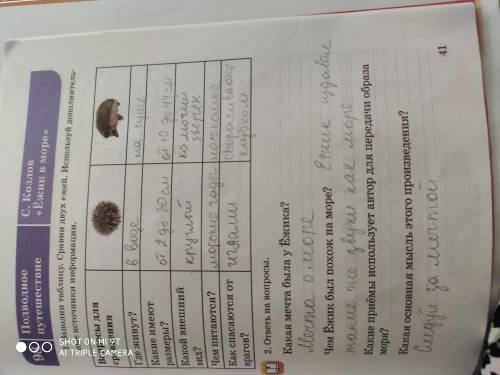 Подводное путешествие
С. Козлов
«Ёжик в море»
Заполни таблицу. Сравни двух ежей. Используй дополнитель-
источники информации.
Где живут? в воде на суше
Какие имеют размеры? от 2 до 30 см от 10 до 44 см
Какой внешний вид? круглый колючий зверёк
Чем питаются? морские
Как спасаются от врагов? иглами клубком
2. Ответь на вопросы.
Какая мечта была у Ёжика?
Мечта о море
Чем Ёжик был похож на море? Ёжик издавал
такие же звуки как море
Какие приёмы использует автор для передачи образа
моря?
Какая основная мысль этого произведения?
Следуй за мечтой
41
SHOT ON MI 9T
AI TRIPLE CAMERA